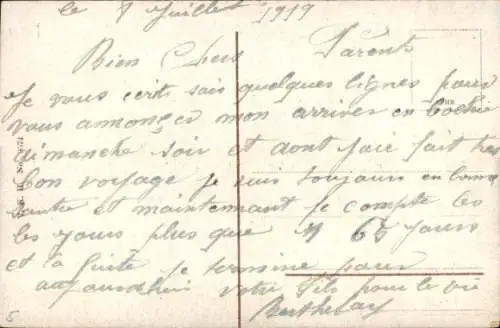 le 8 Juillet 1919
Bien Chers Parents
Je vous ecrit sais quelques lignes pour
vous annonçer mon arriver en bochie
dimanche soir et dont jaie fait tres
bon voyage je suis toujours en bonne
santre et maintenant je compte les
les jours plus que 65 jours
et a suite je termine pour
aujourdhui votre fils pour la vie
Berthelay